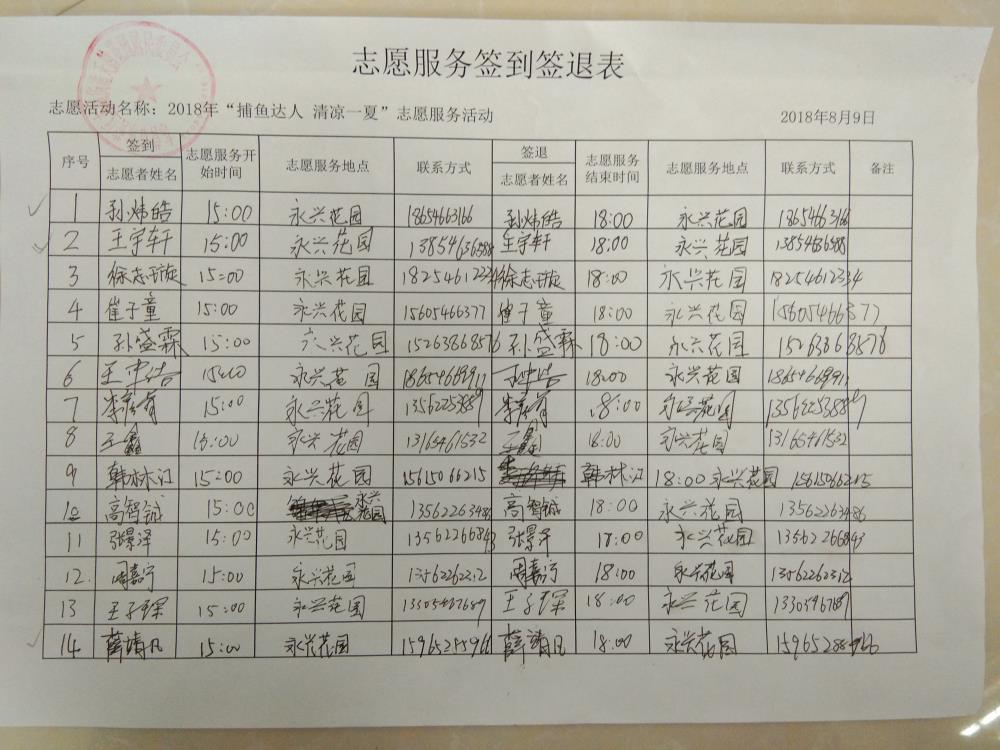 志愿服务签到签退表
志愿活动名称：2018年“捕鱼达人 清凉一夏”志愿服务活动 2018年8月9日
序号 签到 志愿服务开始时间 志愿服务地点 联系方式 签退 志愿服务结束时间 志愿服务地点 联系方式 备注
志愿者姓名 志愿者姓名
1 孙炜皓 15:00 永兴花园 18654663166 孙炜皓 18:00 永兴花园
2 王宇轩 15:00 永兴花园 13854636588 王宇轩 18:00 永兴花园 13854636588
3 徐志璇 15:00 永兴花园 18254612334 徐志璇 18:00 永兴花园 18254612334
4 崔子童 15:00 永兴花园 15605466377 崔子童 18:00 永兴花园 15605466377
5 孙盛霖 15:00 永兴花园 15263868576 孙盛霖 18:00 永兴花园
6 15:00 永兴花园 18:00 永兴花园
7 15:00 永兴花园 18:00 永兴花园
8 王鑫 15:00 永兴花园 13165461532 王鑫 18:00 永兴花园 13165461532
9 韩林江 15:00 永兴花园 15615066215 韩林江 18:00 永兴花园 15615066215
10 高智铖 15:00 永兴花园 13562263486 高智铖 18:00 永兴花园 13562263486
11 张景泽 15:00 永兴花园 13562266843 张景泽 18:00 永兴花园 13562266843
12. 周嘉宁 15:00 永兴花园 13562262312 周嘉宁 18:00 永兴花园 13562262312
13 王子琛 15:00 永兴花园 王子琛 18:00 永兴花园
14 薛靖凡 15:00 永兴花园 薛靖凡 18:00 永兴花园